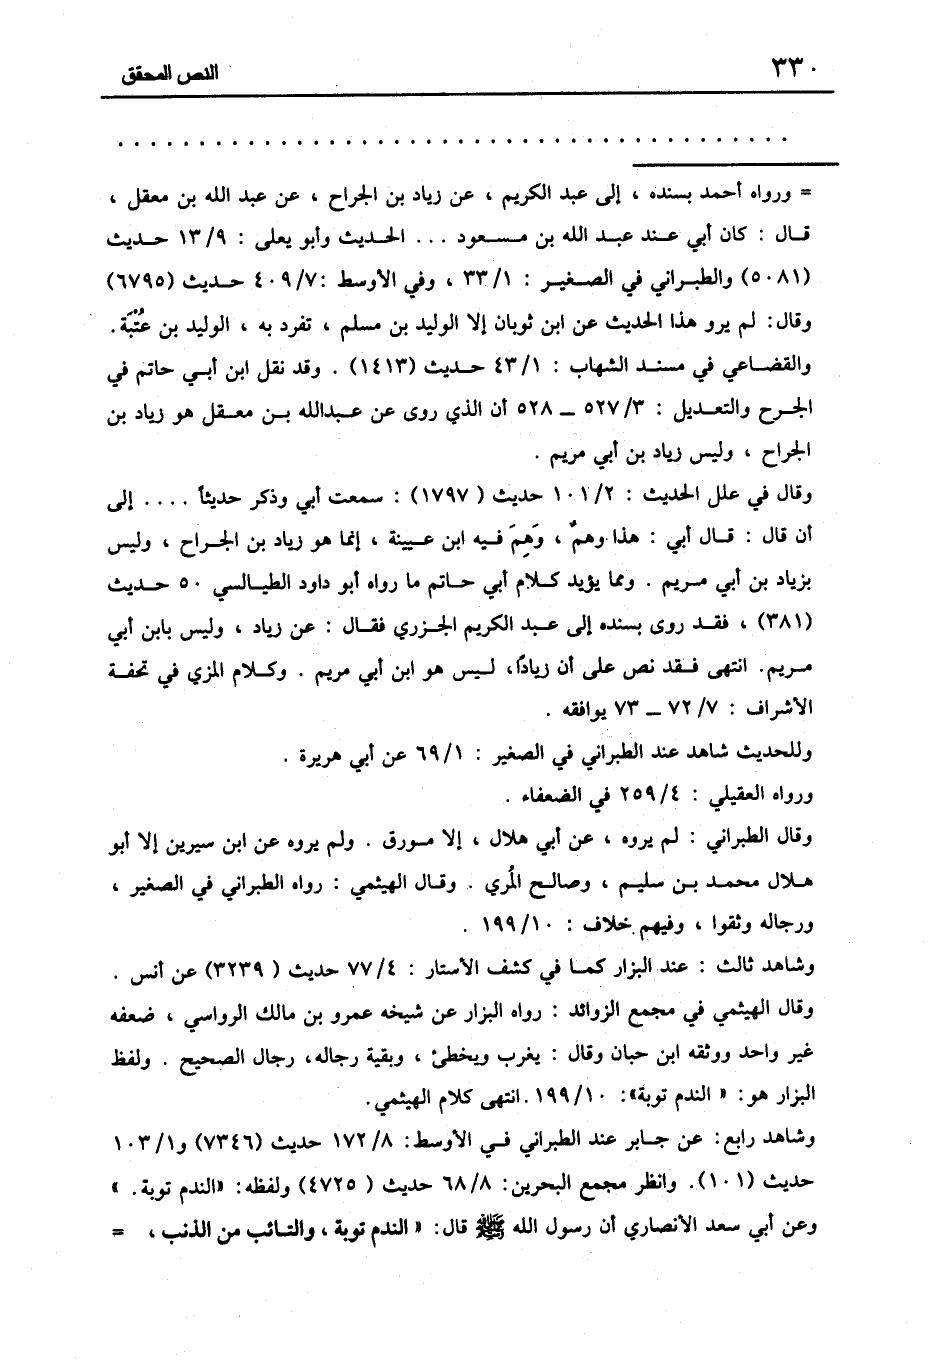 ٣٣٠ النص المحقق
. . . . . . . . . . . . . . . . . . . . . . . . . . . . . . . . . . .
= ورواه أحمد بسنده ، إلى عبد الكريم ، عن زياد بن الجراح ، عن عبد الله بن معقل ،
قال : كان أبي عند عبد الله بن مسعود ... الحديث وأبو يعلى : ١٣/٩ حديث
(٥٠٨١) والطبراني في الصغير : ٣٣/١ ، وفي الأوسط :٤٠٩/٧ حديث (٦٧٩٥)
وقال: لم يرو هذا الحديث عن ابن ثوبان إلا الوليد بن مسلم ، تفرد به ، الوليد بن عُتْبَة.
والقضاعي في مسند الشهاب : ٤٣/١ حديث (١٤١٣) . وقد نقل ابن أبي حاتم في
الجرح والتعديل : ٥٢٧/٣ – ٥٢٨ أن الذي روى عن عبدالله بن معقل هو زياد بن
الجراح ، وليس زياد بن أبي مريم .
وقال في علل الحديث : ١٠١/٢ حديث ( ١٧٩٧) : سمعت أبي وذكر حديثاً .... إلى
أن قال : قال أبي : هذا وهمٌ ، وَهِمَ فيه ابن عيينة ، إنما هو زياد بن الجراح ، وليس
بزياد بن أبي مريم . ومما يؤيد كلام أبي حاتم ما رواه أبو داود الطيالسي ٥٠ حديث
(٣٨١) ، فقد روى بسنده إلى عبد الكريم الجزري فقال : عن زياد ، وليس بابن أبي
مريم. انتهى فقد نص على أن زيادًا، ليس هو ابن أبي مريم . وكلام المزي في تحفة
الأشراف : ٧٢/٧ – ٧٣ يوافقه .
وللحديث شاهد عند الطبراني في الصغير : ٦٩/١ عن أبي هريرة .
ورواه العقيلي : ٢٥٩/٤ في الضعفاء .
وقال الطبراني : لم يروه ، عن أبي هلال ، إلا مورق . ولم يروه عن ابن سيرين إلا أبو
هلال محمد بن سليم ، وصالح المُري . وقال الهيثمي : رواه الطبراني في الصغير ،
ورجاله وثقوا ، وفيهم خلاف : ١٩٩/١٠ .
وشاهد ثالث : عند البزار كما في كشف الأستار : ٧٧/٤ حديث ( ٣٢٣٩) عن أنس .
وقال الهيثمي في مجمع الزوائد : رواه البزار عن شيخه عمرو بن مالك الرواسي ، ضعفه
غير واحد ووثقه ابن حبان وقال : يغرب ويخطئ ، وبقية رجاله، رجال الصحيح . ولفظ
البزار هو: « الندم توبة»: ١٩٩/١٠ .انتهى كلام الهيثمي.
وشاهد رابع: عن جابر عند الطبراني في الأوسط: ١٧٢/٨ حديث (٧٣٤٦) و١٠٣/١
حديث (١٠١). وانظر مجمع البحرين: ٦٨/٨ حديث ( ٤٧٢٥) ولفظه: «الندم توبة. »
وعن أبي سعد الأنصاري أن رسول الله ﷺ قال: « الندم توبة ، والتائب من الذنب ، =